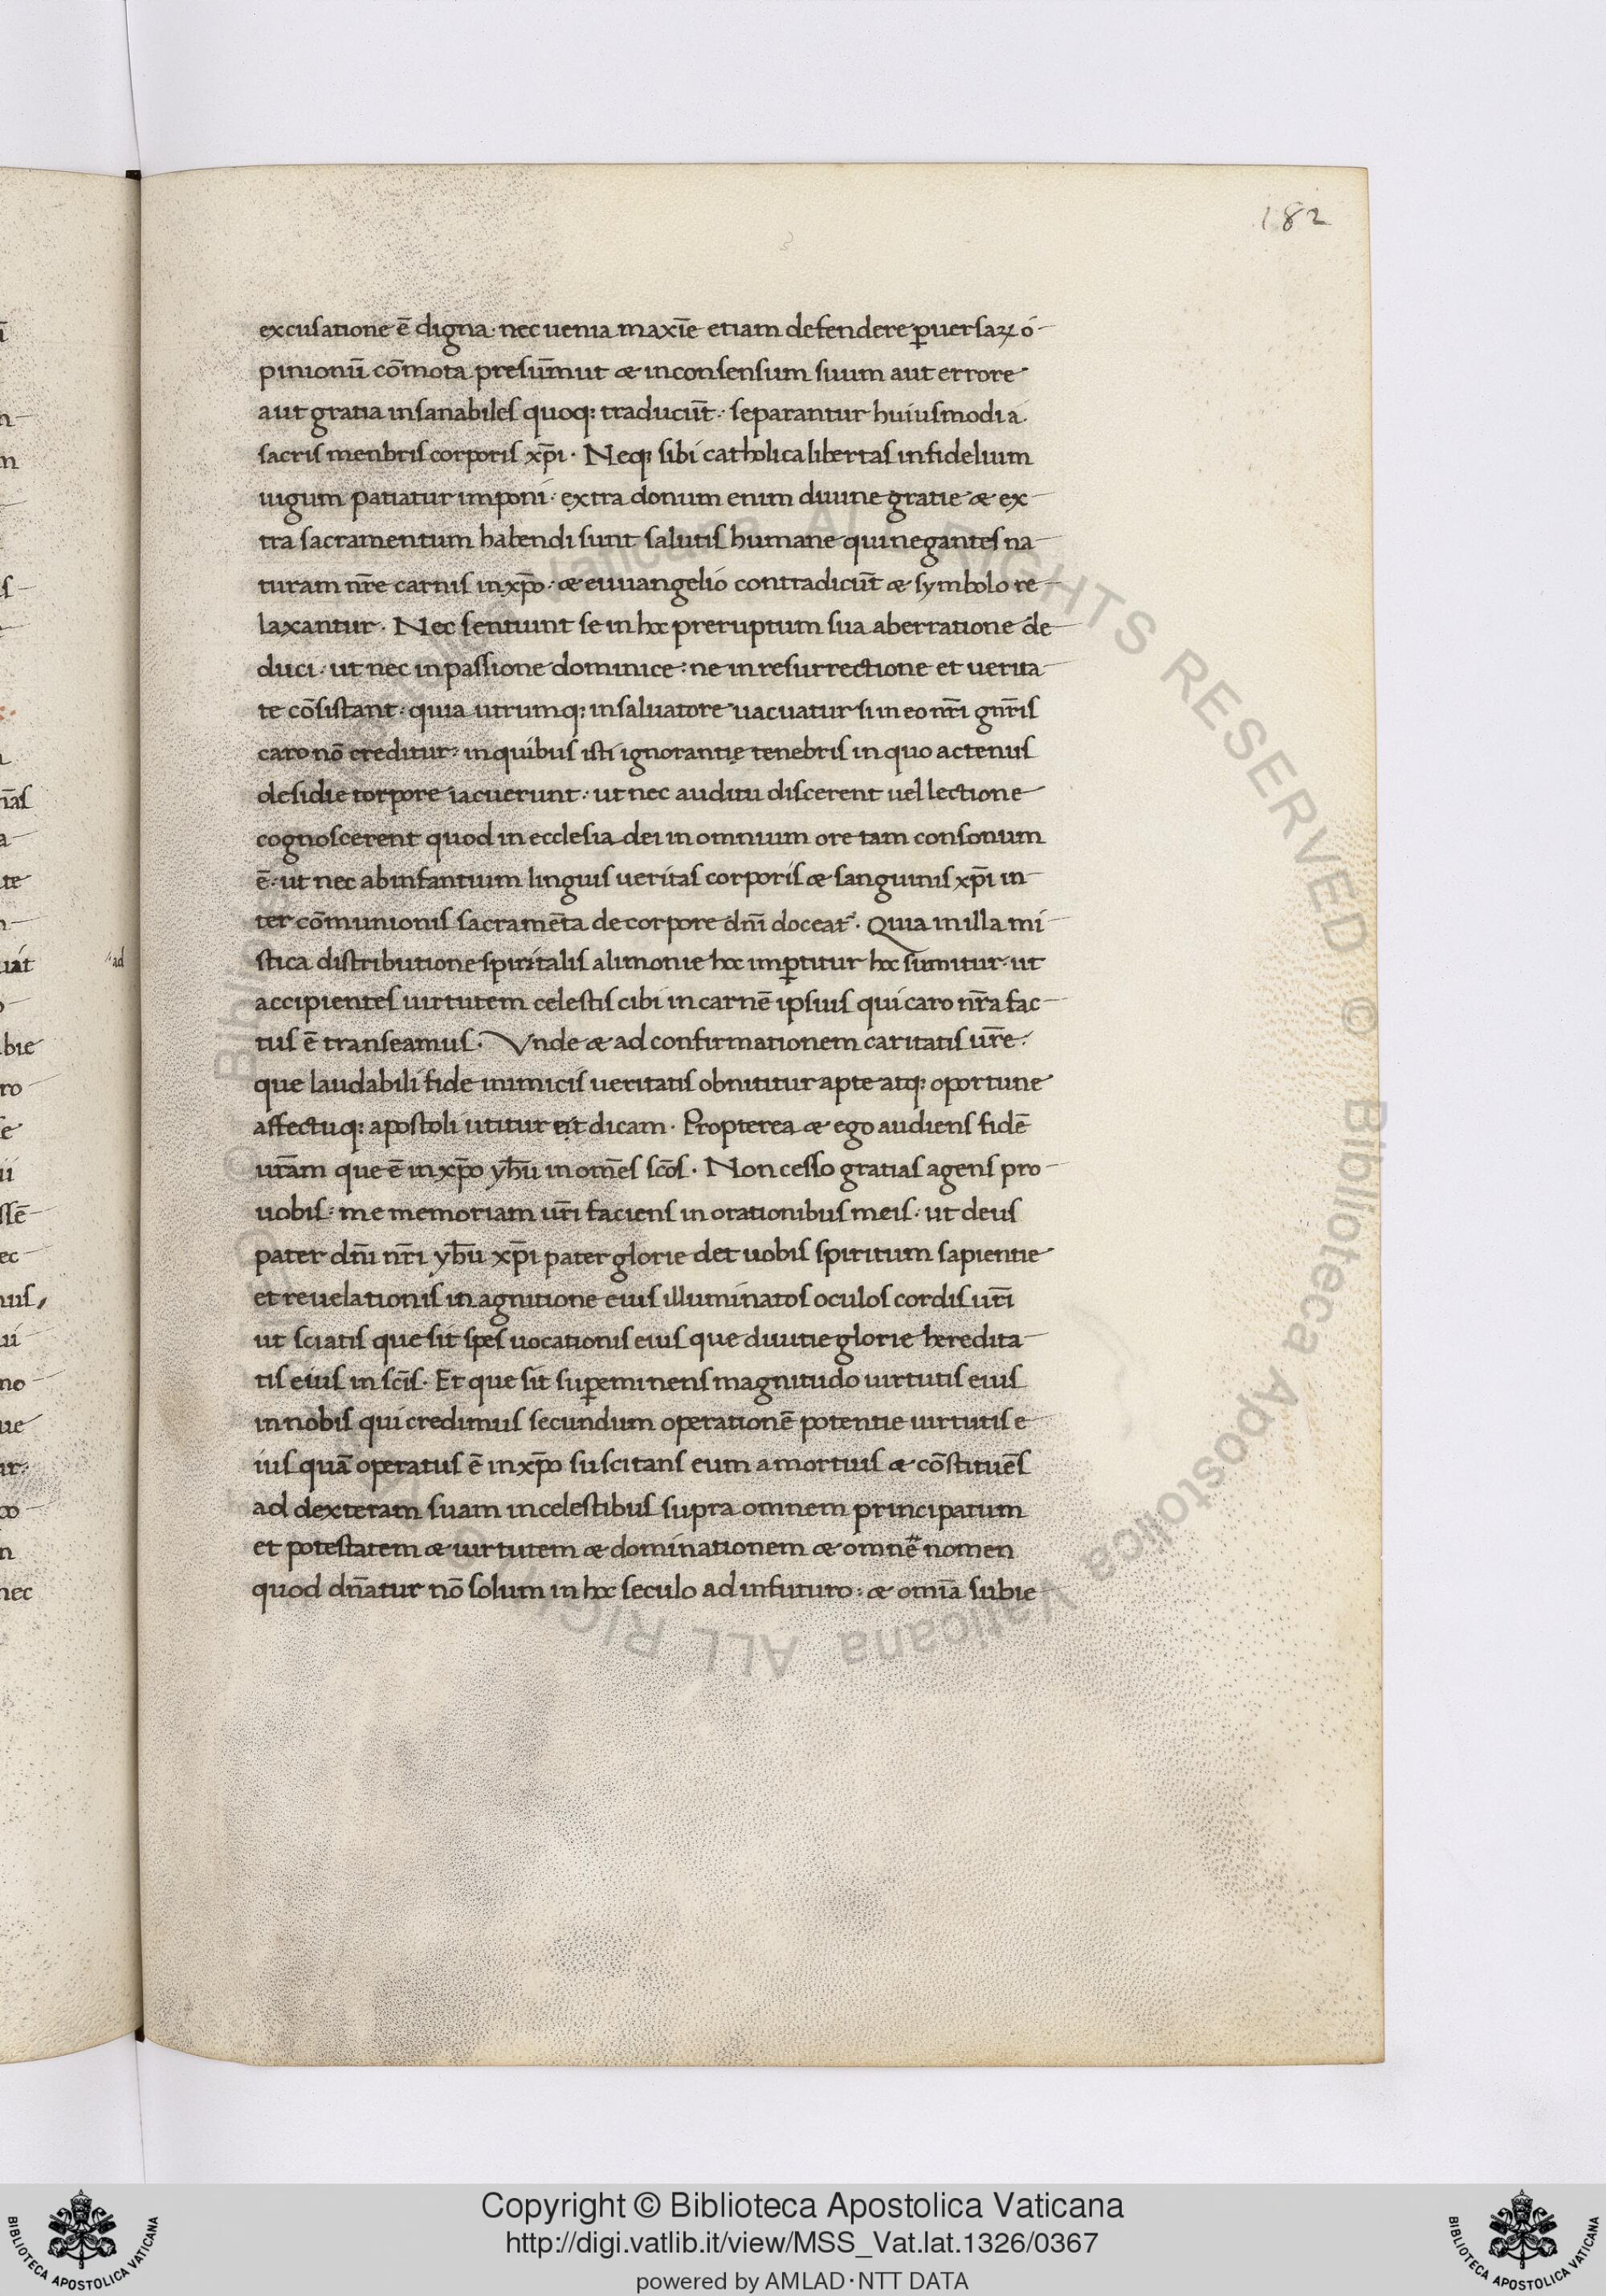 182
excusatione ē digna· nec uenia maxīe etiam defendere ꝑuersaꝝ o-
pinionū cōmota presūmut & inconsensum suum aut errore
aut gratia insanabiles quoq: traducūt· separantur huiusmodi a
sacris menbris corporis xp̄i· Neq: sibi catholica libertas infidelium
iugum patiatur imponi· extra donum enim diuine gratie & ex-
tra sacramentum habendi sunt salutis humane qui negantes na-
turam nr̄e carnis in xp̄o· & euuangelio contradicūt & symbolo re-
laxantur· Nec sentiunt se in hoc preruptum sua aberratione de-
duci· ut nec in passione dominice· ne in resurrectione et uerita-
te cōsistant· quia utrumq: in saluatore uacuatur si in eo nr̄i gnr̄is
caro nō creditur· in quibus isti ignorantię tenebris in quo actenus
desidie torpore iacuerunt· ut nec auditu discerent uel lectione
cognoscerent quod in ecclesia dei in omnium ore tam consonum
ē· ut nec ab infantium linguis ueritas corporis & sanguinis xp̄i in-
ter cōmunionis sacramēta de corpore dn̄i doceat̉· Quia in illa mi-
stica distributione spiritalis alimonie hoc imꝑtitur hoc sumitur· ut
accipientes uirtutem celestis cibi in carnē ipsius qui caro nr̄a fac-
tus ē transeamus· Vnde & ad confirmationem caritatis ur̄e·
que laudabili fide inimicis ueritatis obnititur apte atq: oportune
affectuq: apostoli utitur dicam· Propterea & ego audiens fidē
urām que ē in xp̄o yh̄u in omēs scōs· Non cesso gratias agens pro-
uobis· me memoriam ur̄i faciens in orationibus meis· ut deus
pater dn̄i nr̄i yh̄u xp̄i pater glorie det uobis spiritum sapientie
et reuelationis in agnitione eius illuminatos oculos cordis ur̄i
ut sciatis que sit spes uocationis eius que diuitie glorie heredita-
tis eius in scīs· Et que sit suꝑeminens magnitudo uirtutis eius
in nobis qui credimus secundum operationē potentie uirtutis e-
ius quā operatus ē in xp̄o suscitans eum a mortuis & cōstituēs
ad dexteram suam in celestibus supra omnem principatum
et potestatem & uirtutem & dominationem & omnē nomen
quod dn̄atur nō solum in hoc seculo ad in futuro· & omīa subie-
Copyright © Biblioteca Apostolica Vaticana
http://digi.vatlib.it/view/MSS_Vat.lat.1326/0367
powered by AMLAD·NTT DATA